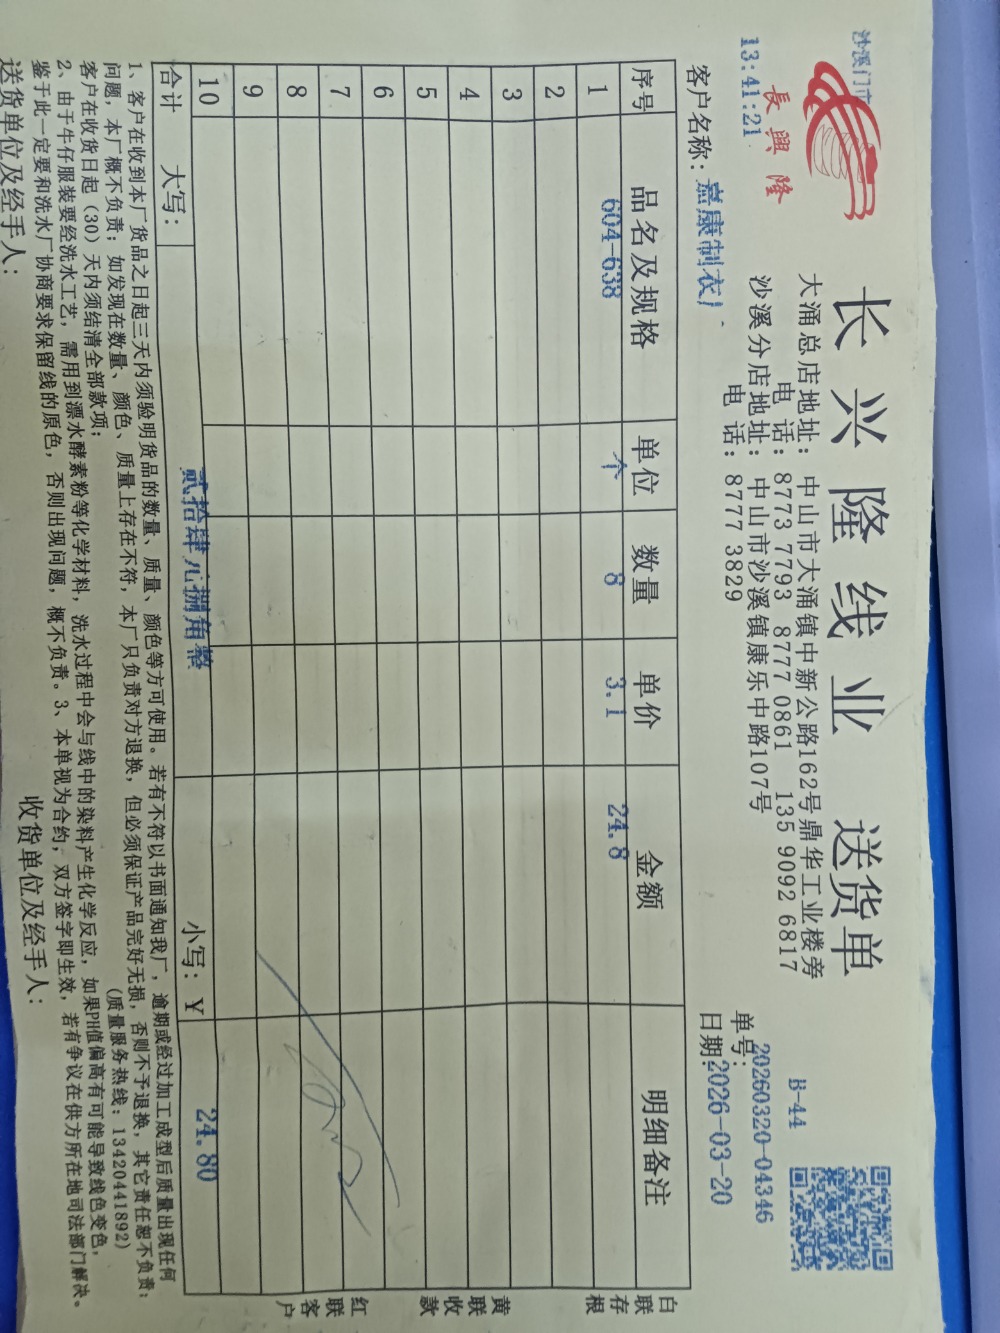 沙溪门市
13:41:21
長興隆
长兴隆线业 送货单
B-44
大涌总店地址：中山市大涌镇中新公路162号鼎华工业楼旁
电 话：8773 7793 8777 0861 135 9092 6817
沙溪分店地址：中山市沙溪镇康乐中路107号
电 话：8777 3829
单号：20260320-04346
客户名称：嘉康制衣厂
日期：2026-03-20
序号 品名及规格 单位 数量 单价 金额 明细备注
1 604-638 个 8 3.1 24.8
2
3
4
5
6
7
8
9
10
合计 大写： 贰拾肆元捌角整 小写：￥ 24.80
白联存根
黄联收款
红联客户
1、客户在收到本厂货品之日起三天内须验明货品的数量、质量、颜色等方可使用。若有不符以书面通知我厂，逾期或经过加工成型后质量出现任何
问题，本厂概不负责；如发现在数量、颜色、质量上存在不符，本厂只负责对方退换，但必须保证产品完好无损，否则不予退换，其它责任恕不负责；
客户在收货日起（30）天内须结清全部款项； （质量服务热线：13420441892）
2、由于牛仔服装要经洗水工艺，需用到漂水酵素粉等化学材料，洗水过程中会与线中的染料产生化学反应，如果PH值偏高有可能导致线色变色，
鉴于此一定要和洗水厂协商要求保留线的原色，否则出现问题，概不负责。3、本单视为合约，双方签字即生效，若有争议在供方所在地司法部门解决。
送货单位及经手人： 收货单位及经手人：